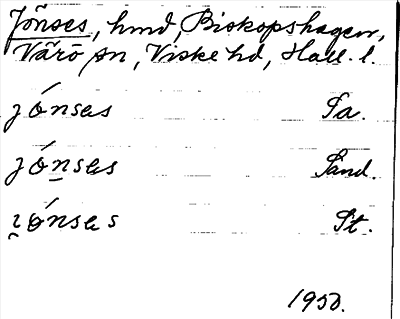 Jönses, hmd, Biskopshagen,
Värö sn, Viske hd, Hall. l.
jónsɘs Pa.
jónsɘs Sand.
ɪónsɘs St.
1950.